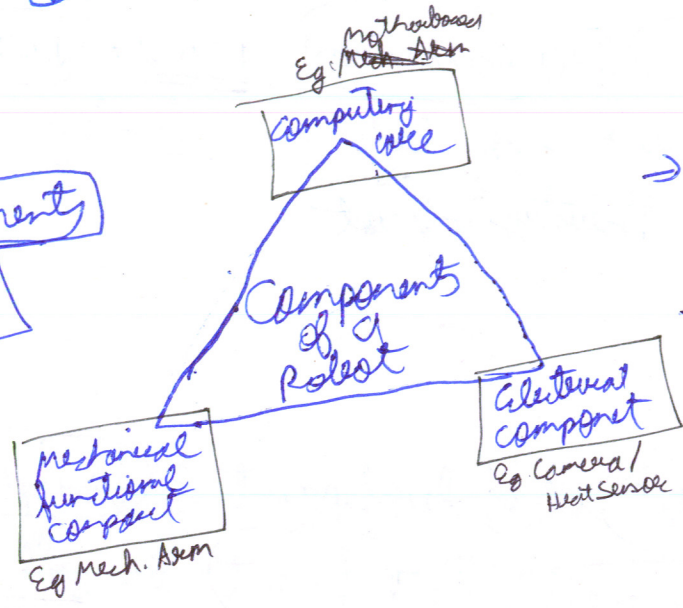 Motherboard
Eg: Mech. Arm
Computing
core
nents
Components
of a
Robot
Electrical
componet
Eg Camera/
Heat Sensor
Mechanical
functional
Eg Mech. Arm